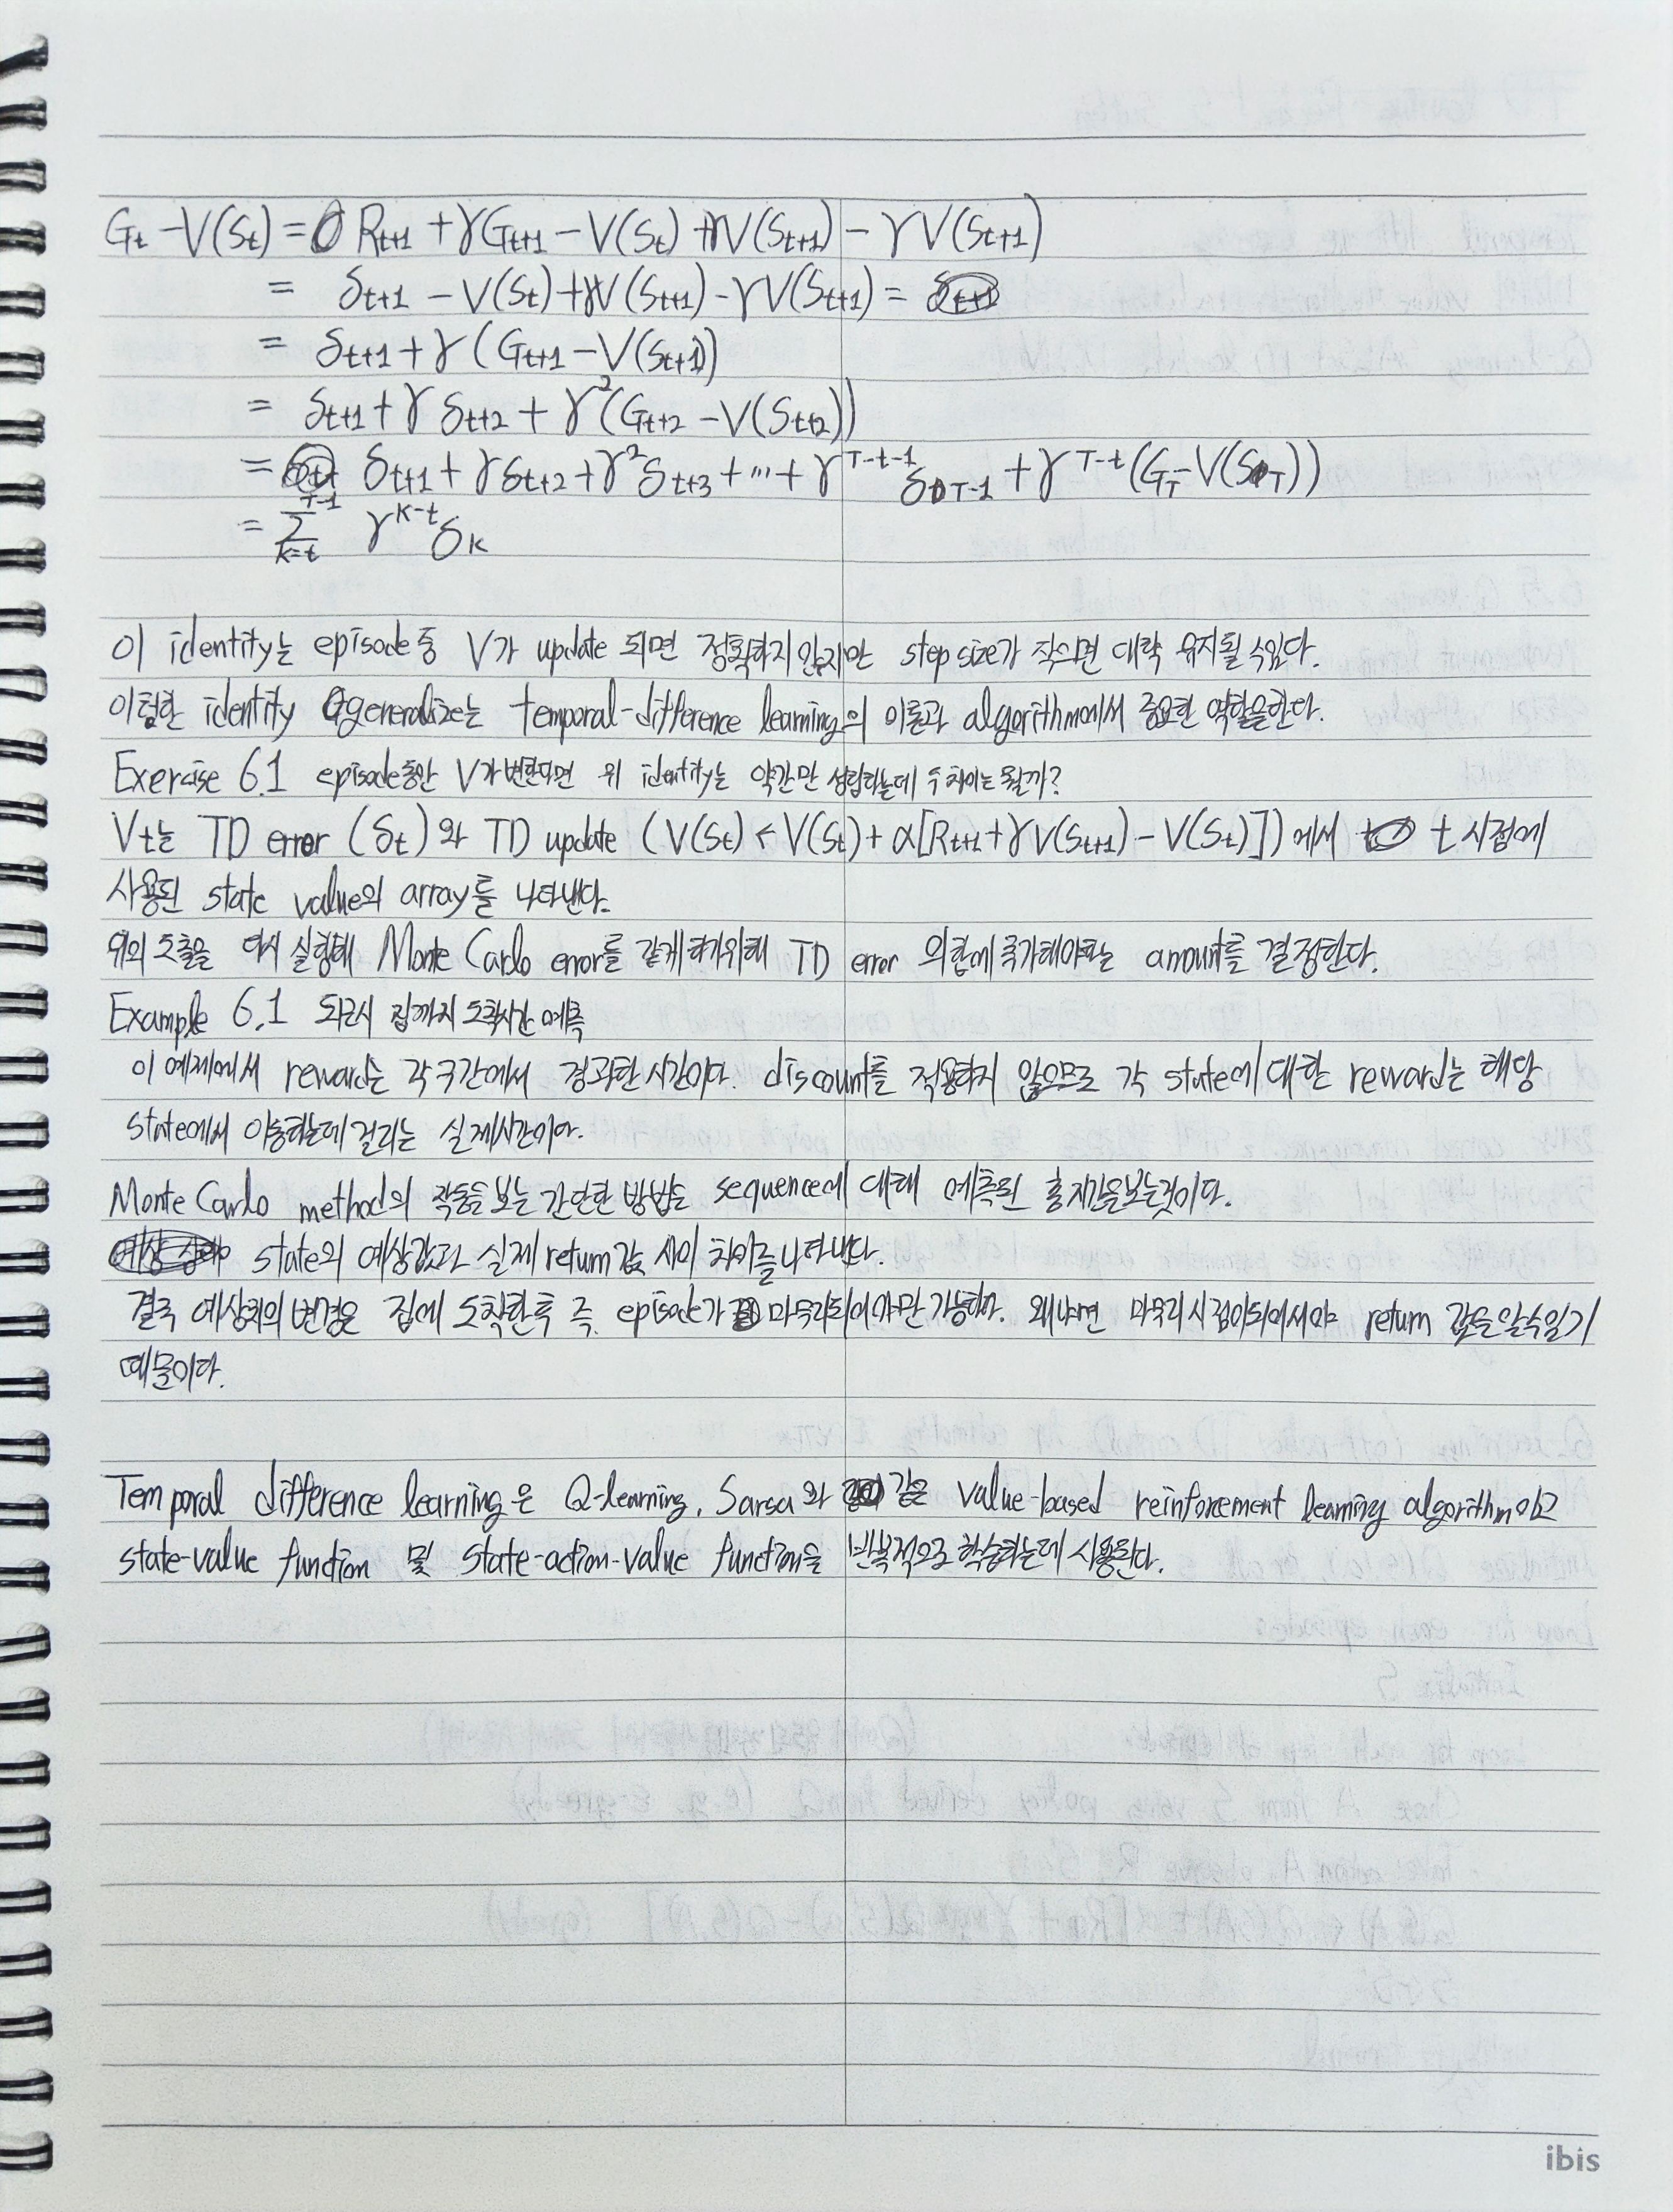 Gt - V(St) = Rt+1 + γGt+1 - V(St) + γV(St+1) - γV(St+1)
= δt+1 - V(St) + γV(St+1) - γV(St+1) =
= δt+1 + γ(Gt+1 - V(St+1))
= δt+1 + γ δt+2 + γ²(Gt+2 - V(St+2))
= δt+1 + γδt+2 + γ²δt+3 + ... + γ^T-t-1 δT-1 + γ^T-t (GT - V(ST))
= Σ k=t T-1 γ^k-t δk
이 identity는 episode중 V가 update 되면 정확하지 않지만 step size가 작으면 대략 유지될 수있다.
이러한 identity generalize는 temporal-difference learning의 이론과 algorithm에서 중요한 역할을한다.
Exercise 6.1 episode동안 V가변한다면 위 identity는 약간만 성립하는데 두 차이는 뭘까?
Vt는 TD error (δt)와 TD update (V(St) ← V(St) + α[Rt+1 + γV(St+1) - V(St)])에서 t시점에
사용된 state value의 array를 나타낸다.
위의 도출을 다시 실행해 Monte Carlo error를 같게하기위해 TD error 의합에 추가해야하는 amount를 결정한다.
Example 6.1 퇴근시 집까지 도착시간 예측
이 예제에서 reward는 각 구간에서 경과한 시간이다. discount를 적용하지 않으므로 각 state에 대한 reward는 해당
state에서 이동하는데 걸리는 실제시간이다.
Monte Carlo method의 작동을 보는 간단한 방법은 sequence에 대해 예측된 시간을보는것이다.
state의 예상값과 실제 return값 사이 차이를 나타낸다.
결국 예상치의 변경은 집에 도착한후 즉 episode가 마무리되어야만 가능하다. 왜냐면 마무리 시점이되어서야 return 값을알수있기
때문이다.
Temporal difference learning은 Q-learning, Sarsa 와 같은 value-based reinforcement learning algorithm이고
state-value function 및 state-action-value function을 반복적으로 학습하는데 사용된다.
ibis